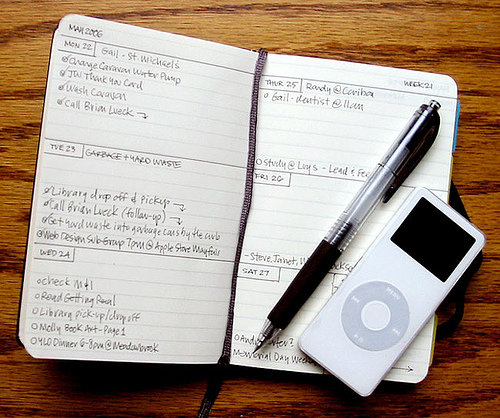 MAY 2006
MON 22 Gail - St. Michael's
Change Caravan Water Pump
JW Thank You Card
Wash Caravan
Call Brian Lueck
TUE 23 GARBAGE + YARD WASTE
Library drop off & pickup
Call Brian Lueck (follow-up)
Get yard waste into garbage cans by the curb
Web Design Sub-Group 7pm @ Apple Store Mayfair
WED 24
check
Read Getting Real
Library pick-up/drop off
Molly Book Art - Page 1
YLO Dinner 6-8pm @ Meadowbrook
THUR 25 Randy @ Caribou WEEK 21
Gail - dentist @ 11am
Study @ Loy's - Lead &
FRI 26
- Steve, Janet,
SAT 27
Memorial Day Week
MENU